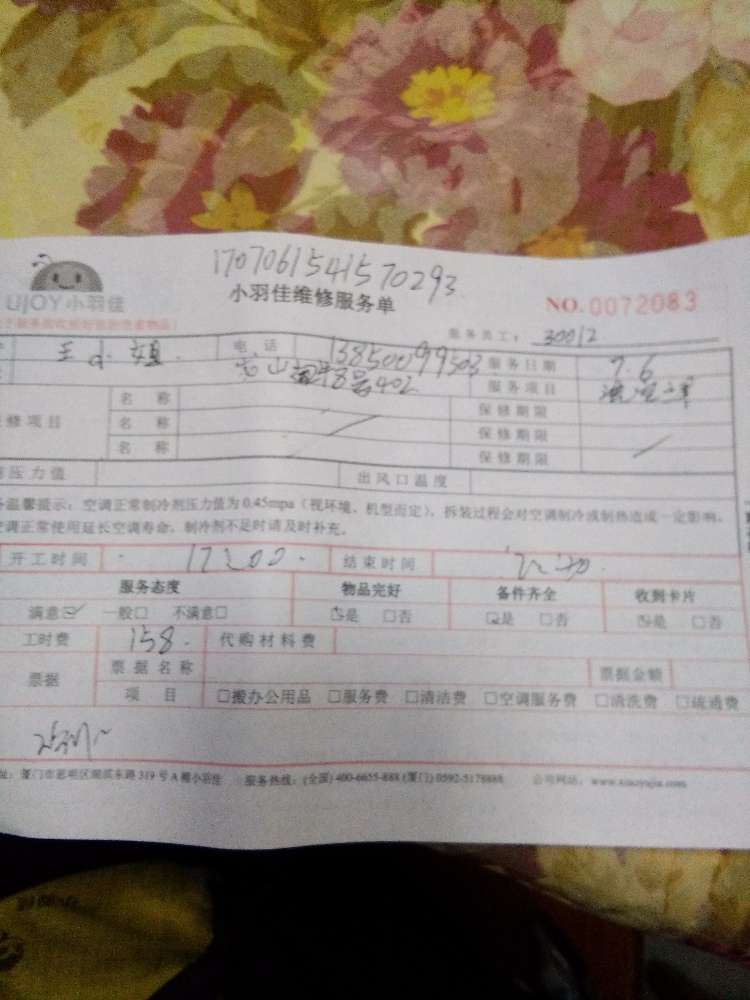 17070615415 70293
UJOY小羽佳
小羽佳维修服务单
NO.0072083
服务员工: 30012
王 姐 电话 13850099503 服务日期 7.6
山 18号402 服务项目
修项目 名称 保修期限
名称 保修期限
名称 保修期限
压力值 出风口温度
温馨提示:空调正常制冷剂压力值为0.45mpa(视环境、机型而定),拆装过程会对空调制冷或制热造成一定影响,
调正常使用延长空调寿命,制冷剂不足时请及时补充。
开工时间 17:00. 结束时间
服务态度 物品完好 备件齐全 收到卡片
满意☑ 一般□ 不满意□ ☑是 □否 ☑是 □否 ☑是 □否
工时费 158. 代购材料费
票据 票据名称 票据金额
项目 □搬办公用品 □服务费 □清洁费 □空调服务费 □清洗费 □疏通费
址:厦门市思明区湖滨东路319号A幢小羽佳 服务热线:(全国)400-6655-888(厦门)0592-5178888 公司网站:www.xiaoyujia.com